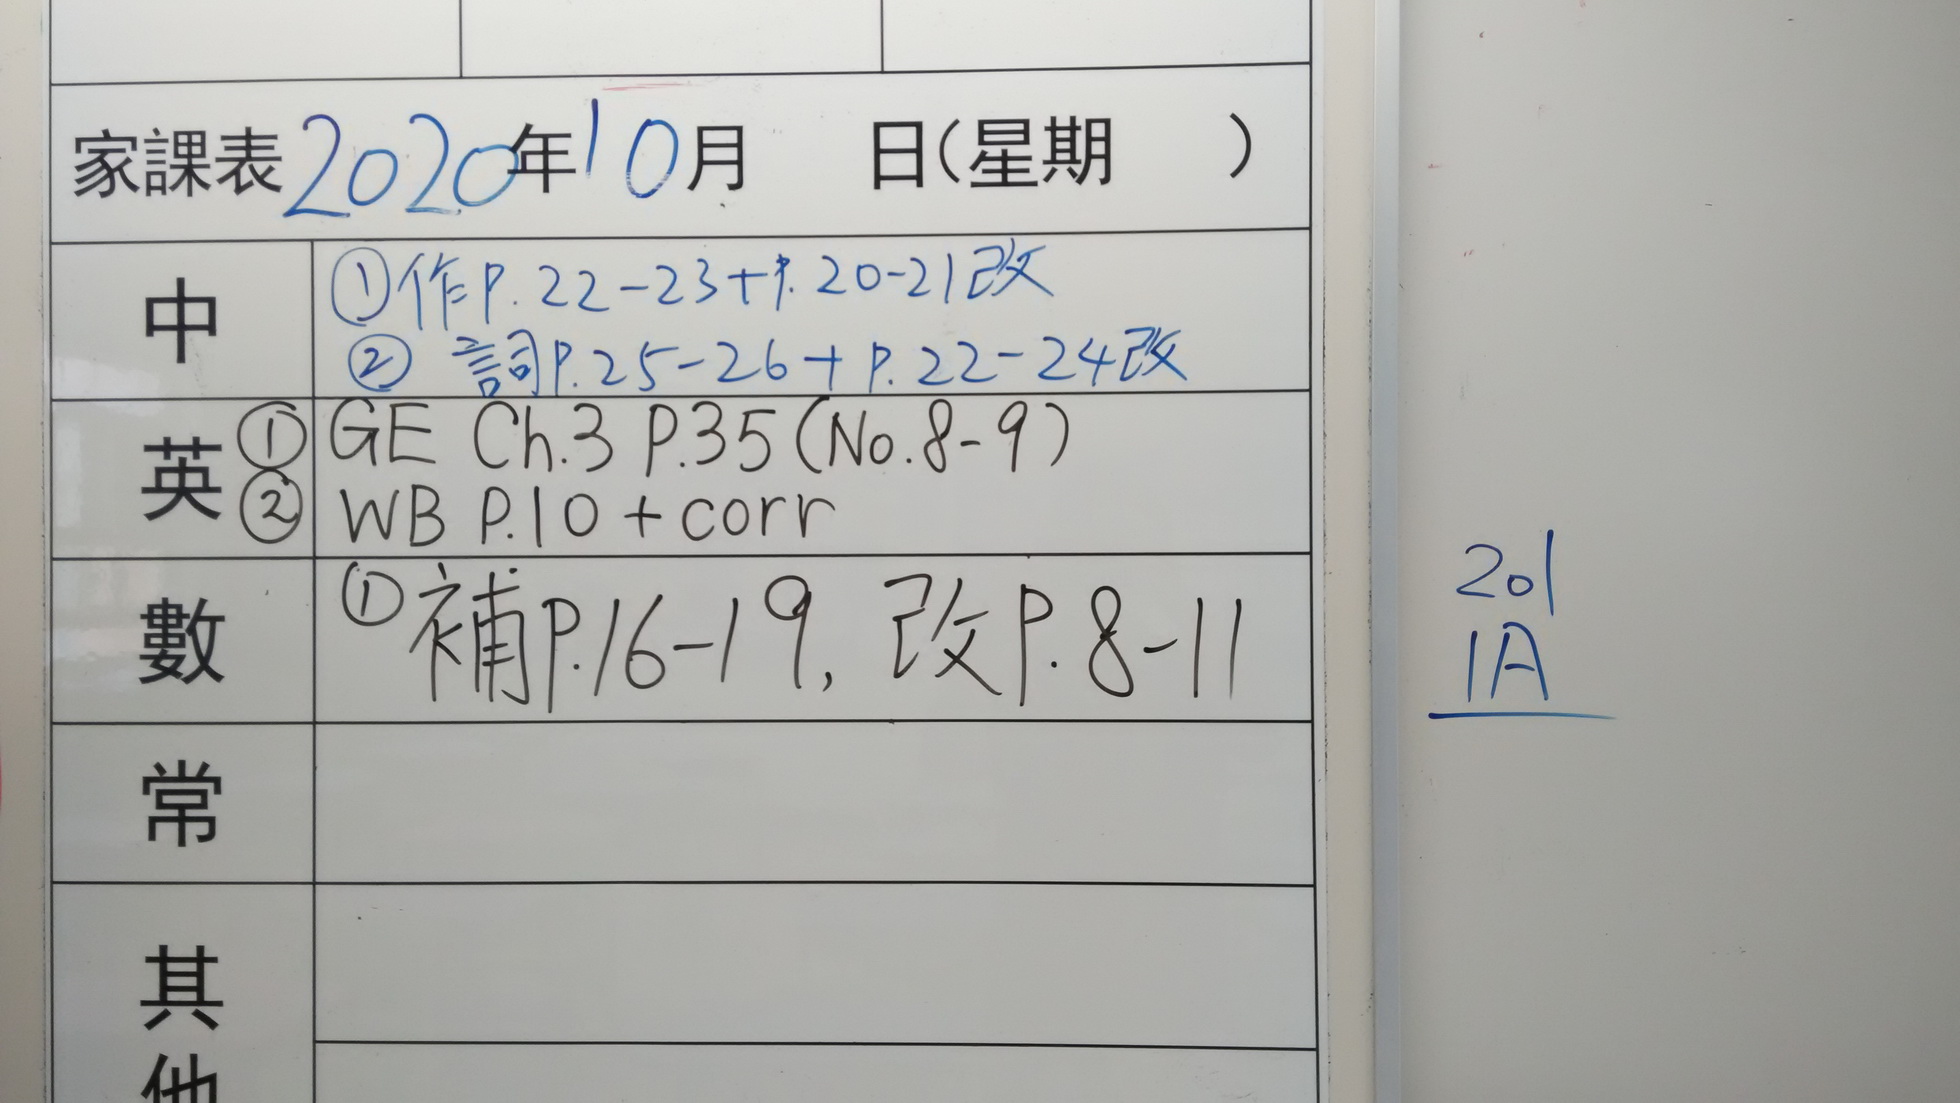 家課表2020年10月 日(星期 )
中
①作P.22-23+P.20-21改
②詞P.25-26+P.22-24改
英
①GE Ch.3 P.35(No.8-9)
②WB P.10+corr
數
①補P.16-19, 改P.8-11
常
其他
201
1A